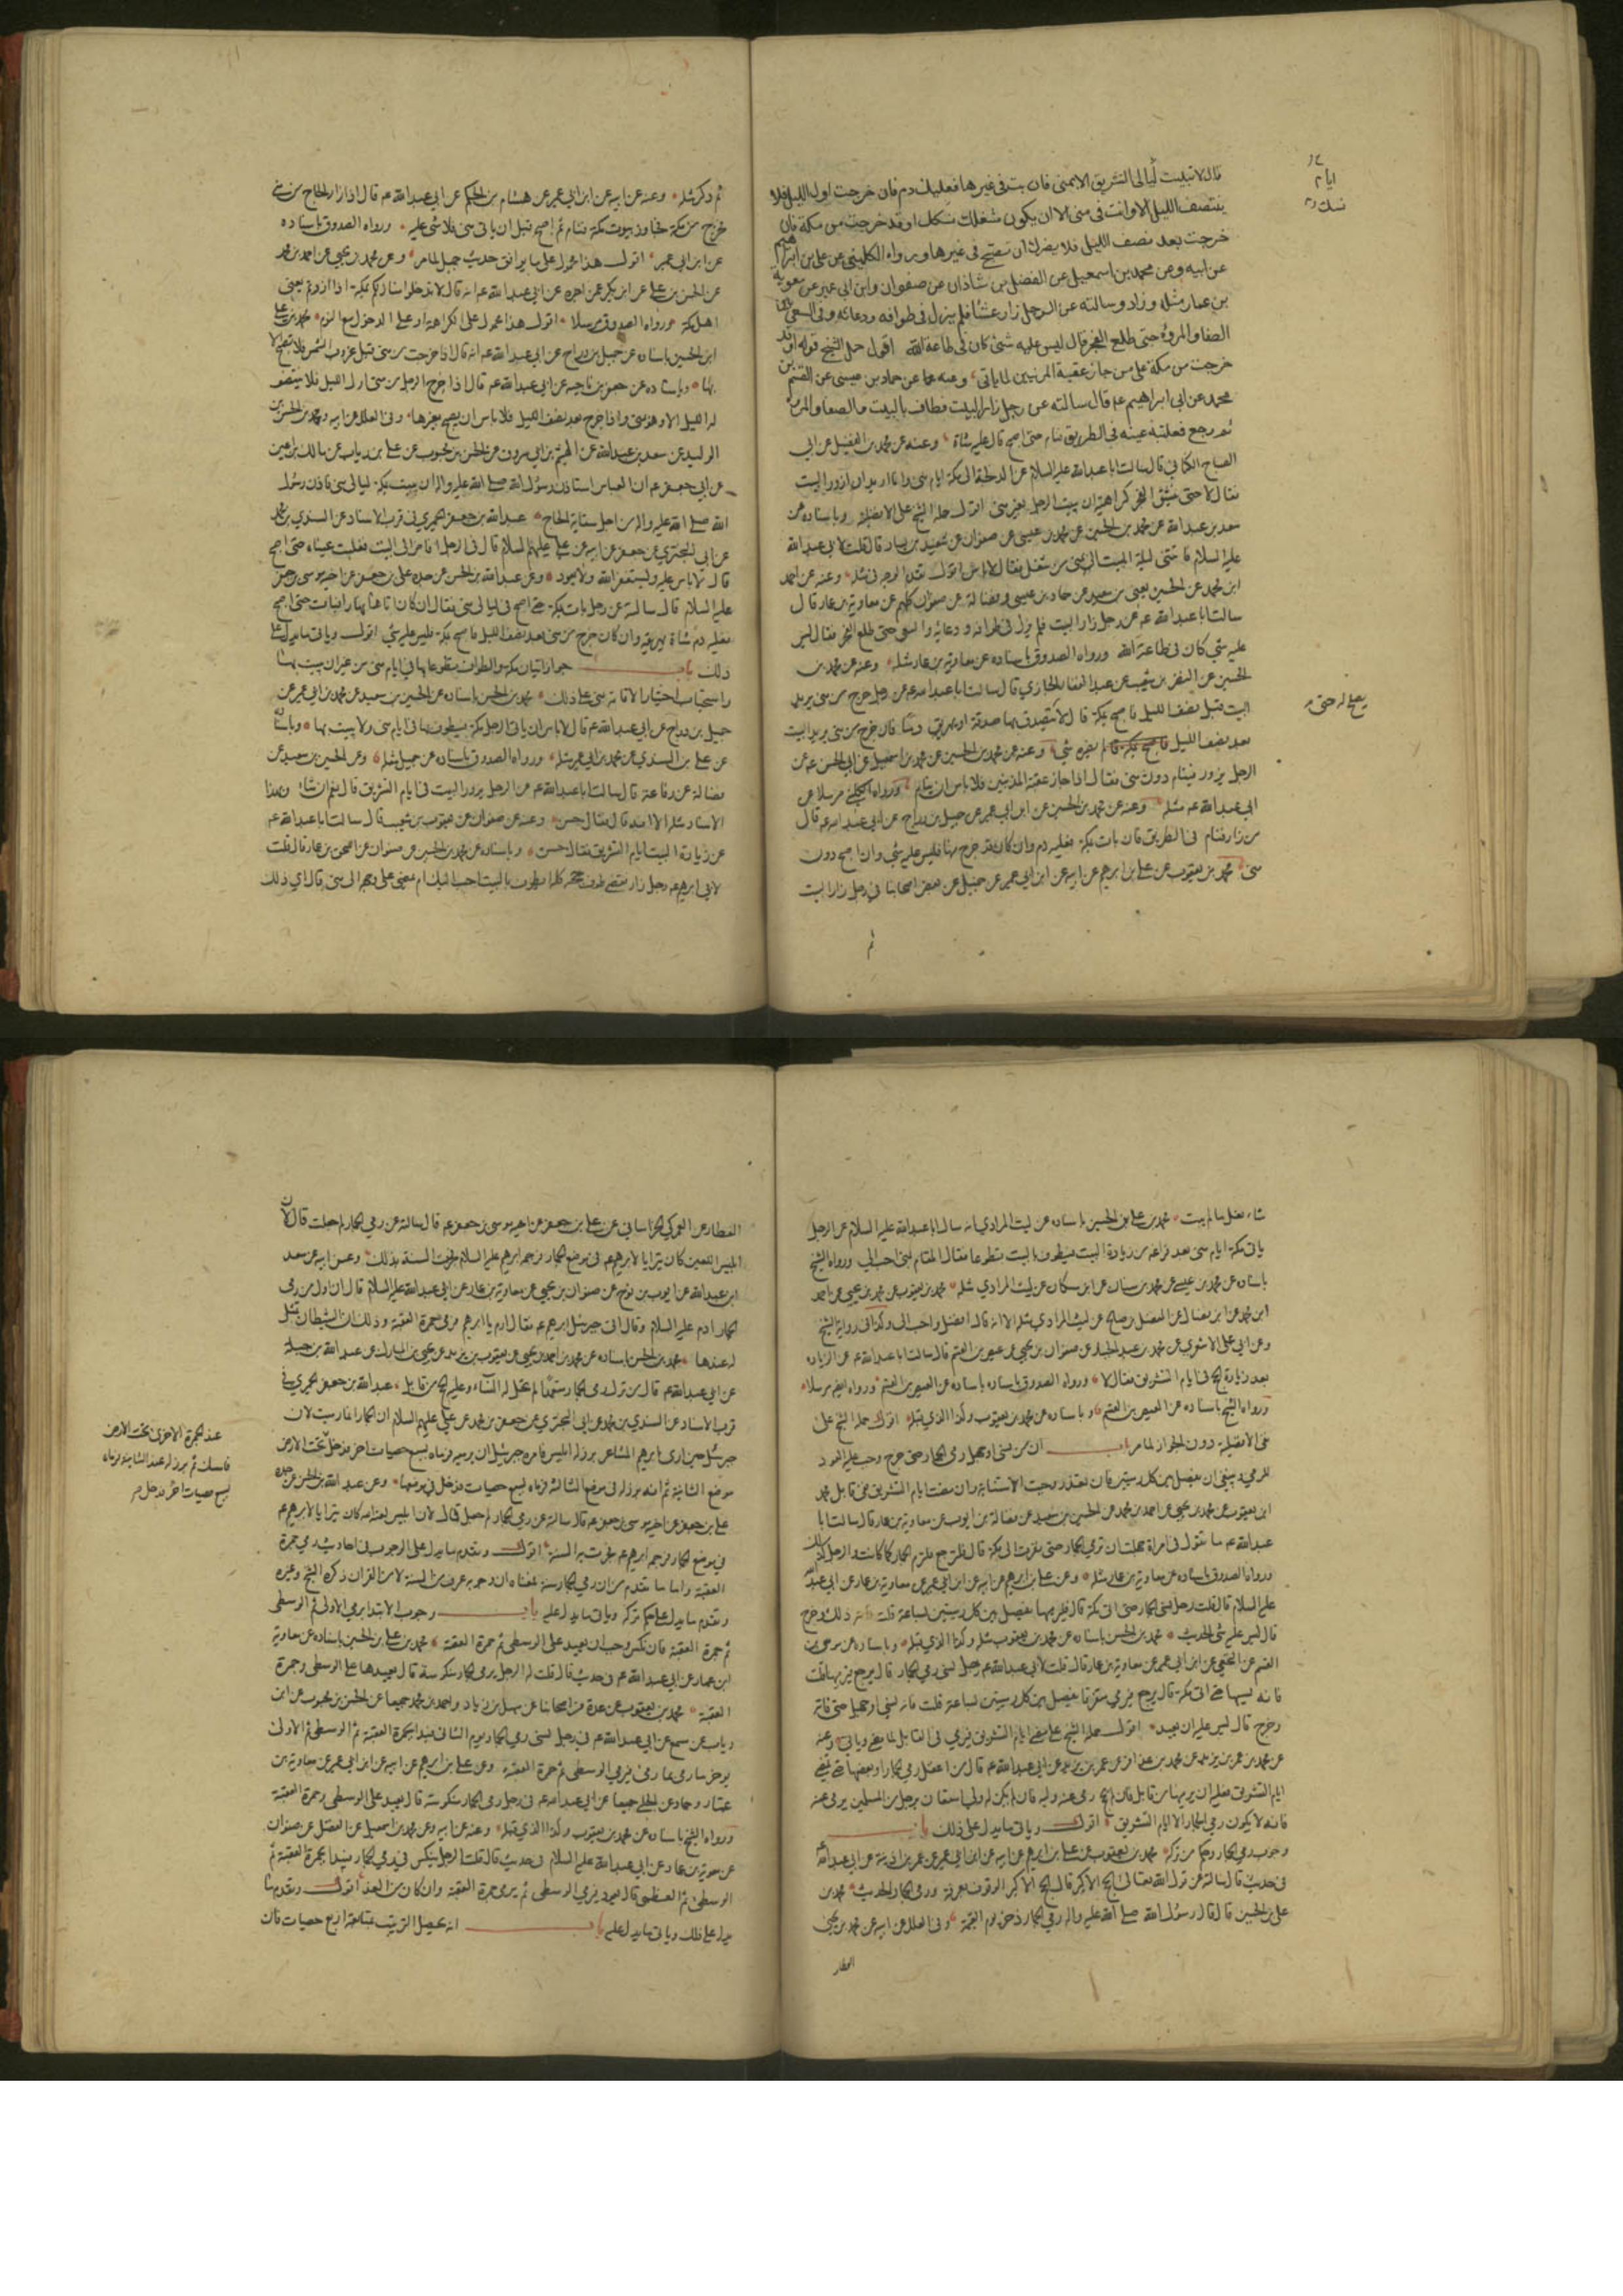 قال لا تبيت ليالي التشريق الا بمنى فان بت في غيرها فعليك دم فان خرجت اول الليل فلا
ينتصف الليل الا وانت في منى الا ان يكون شغلك نسكك او قد خرجت من مكة فان
خرجت بعد نصف الليل فلا يضرك ان تصبح في غيرها ورواه الكليني عن علي بن ابراهيم
عن ابيه وعن محمد بن اسمعيل عن الفضل بن شاذان عن صفوان وابن ابي عمير عن معوية
بن عمار مثله وزاد وسالته عن الرجل زار عشاء فلم يزل في طوافه ودعائه وفي السعي بين
الصفا والمروة حتى طلع الفجر قال ليس عليه شئ كان في طاعة الله اقول حمل الشيخ قوله او قد
خرجت من مكة على من جاز عقبة المدنيين لما ياتي وعنه عن حماد بن عيسى عن القسم بن
محمد عن ابي ابراهيم عم قال سالته عن رجل زار البيت فطاف بالبيت وبالصفا والمروة
ثم رجع فغلبته عينه في الطريق فنام حتى اصبح قال عليه شاة وعنه عن محمد بن الفضيل عن ابي
الصباح الكناني قال سالت ابا عبدالله عليه السلام عن الدلجة الى مكة ايام منى وانا اريد ان ازور البيت
فقال لا حتى ينشق الفجر كراهية ان يبيت الرجل بغير منى اقول حمله الشيخ على الافضلية وباسناده عن
سعد بن عبدالله عن محمد بن الحسين عن صفوان عن سعيد بن يسار قال قلت لابي عبدالله
عليه السلام فاتتني ليلة المبيت بمنى من شغل فقال لا باس اقول تقدم الوجه في مثله وعنه عن احمد
ابن محمد عن الحسين يعني بن سعيد عن حماد بن عيسى وفضالة عن صفوان كلهم عن معاوية بن عمار قال
سالت ابا عبدالله عم عن رجل زار البيت فلم يزل في طوافه ودعائه والسعي حتى طلع الفجر فقال ليس
عليه شئ كان في طاعة الله ورواه الصدوق باسناده عن معاوية بن عمار مثله وعنه عن محمد بن
الحسين عن النضر بن شعيب عن عبد الغفار الجازي قال سالت ابا عبدالله عم عن رجل خرج من منى يريد
البيت قبل نصف الليل فاصبح بمكة قال لا يتصدق بها صدقة او يهريق دما فان خرج من منى يريد البيت
بعد نصف الليل فاصبح بمكة قال لم يضره شئ وعنه عن محمد بن الحسين عن محمد بن اسمعيل عن ابي الحسن عم عن
الرجل يزور فينام دون منى فقال اذا جاز عقبة المدنيين فلا باس ان ينام ورواه الكليني مرسلا عن
ابي عبدالله عم مثله وعنه عن محمد بن الحسين عن ابن ابي عمير عن جميل بن دراج عن ابي عبدالله عم قال
من زار فنام في الطريق فان بات بمكة فعليه دم وان كان قد خرج منها فليس عليه شئ وان اصبح دون
منى محمد بن يعقوب عن علي بن ابرهيم عن ابيه عن ابن ابي عمير عن جميل عن بعض اصحابنا في رجل زار البيت
ايام
ثم
ثم ذكر مثله وعنه عن ابيه عن ابن ابي عمير عن هشام بن الحكم عن ابي عبدالله عم قال اذا زار الحاج من منى
فخرج من مكة فجاوز بيوت مكة فنام ثم اصبح قبل ان ياتي منى فلا شئ عليه ورواه الصدوق باسناده
عن ابن ابي عمير اقول هذا محمول على ما يوافق حديث جميل لما مر وعن محمد بن يحيى عن احمد بن محمد
عن الحسن بن علي عن ابن بكير عمن اخبره عن ابي عبدالله عم انه قال لا تدخلوا منازلكم بمكة اذا زرتم يعني
اهل مكة ورواه الصدوق مرسلا اقول هذا محمول على الكراهة او على الدخول مع النوم محمد بن علي
ابن الحسين باسناده عن جميل بن دراج عن ابي عبدالله عم انه قال اذا خرجت من منى قبل غروب الشمس فلا تصبح الا
بها وباسناده عن جعفر بن ناجية عن ابي عبدالله عم قال اذا خرج الرجل من منى اول الليل فلا ينتصف
له الليل الا وهو بمنى واذا خرج بعد نصف الليل فلا باس ان يصبح بغيرها وفي العلل عن ابيه ومحمد بن الحسن بن
الوليد عن سعد بن عبدالله عن الهيثم بن ابي مسروق عن الحسن بن محبوب عن علي بن رياب عن مالك بن اعين
عن ابي جعفر عم ان العباس استاذن رسول الله صلى الله عليه واله ان يبيت بمكة ليالي منى فاذن رسول
الله صلى الله عليه واله من اجل سقاية الحاج عبدالله بن جعفر الحميري في قرب الاسناد عن السندي بن محمد
عن ابي البختري عن جعفر عن ابيه عن علي عليهم السلام قال في الرجل افاض الى البيت فغلبت عيناه حتى اصبح
قال لا باس عليه ويستغفر الله ولا يعود وعن عبدالله بن الحسن عن جده علي بن جعفر عن اخيه موسى بن جعفر
عليه السلام قال سالته عن رجل بات بمكة حتى اصبح في ليالي منى فقال ان كان اتاها نهارا فبات حتى اصبح
فعليه دم شاة يهريقه وان كان خرج من منى بعد نصف الليل فاصبح بمكة فليس عليه شئ اقول وياتي ما يدل على
ذلك باب جواز اتيان مكة والطواف تطوعا بها في ايام منى من غير ان يبيت بها
واستحباب اختيار الاقامة بمنى على ذلك محمد بن الحسن باسناده عن الحسين بن سعيد عن محمد بن ابي عمير عن
جميل بن دراج عن ابي عبدالله عم قال لا باس ان ياتي الرجل مكة فيطوف بها في ايام منى ولا يبيت بها وباسناده
عن علي بن السندي عن محمد بن ابي عمير مثله ورواه الصدوق باسناده عن جميل مثله وعن الحسين بن سعيد عن
فضالة عن رفاعة قال سالت ابا عبدالله عم عن الرجل يزور البيت في ايام التشريق قال نعم ان شاء وبهذا
الاسناد مثله الا انه قال فقال حسن وعنه عن صفوان عن يعقوب بن شعيب قال سالت ابا عبدالله عم
عن زيارة البيت ايام التشريق فقال حسن وباسناده عن محمد بن الحسين عن صفوان عن اسحق بن عمار قال قلت
لابي ابرهيم عم رجل زار فقضى طواف حجه كله ايطوف بالبيت احب اليك ام يمضي على وجهه الى منى قال اي ذلك
شاء فعل ما لم يبت محمد بن علي بن الحسين باسناده عن ليث المرادي انه سال ابا عبدالله عليه السلام عن الرجل
ياتي مكة ايام منى بعد فراغه من زيارة البيت فيطوف بالبيت تطوعا فقال المقام بمنى احب الي ورواه الشيخ
باسناده عن محمد بن عيسى عن محمد بن سنان عن ابن مسكان عن ليث المرادي مثله محمد بن يعقوب عن محمد بن يحيى عن احمد
ابن محمد عن ابن فضال عن المفضل بن صالح عن ليث المرادي مثله الا انه قال افضل واحب الي وكذا في رواية الشيخ
وعن ابي علي الاشعري عن محمد بن عبد الجبار عن صفوان بن يحيى عن عيص بن القسم قال سالت ابا عبدالله عم عن الزيارة
بعد زيارة الحج في ايام التشريق فقال لا ورواه الصدوق باسناده عن العيص بن القسم ورواه ايضا مرسلا
ورواه الشيخ باسناده عن العيص بن القسم وباسناده عن محمد بن يعقوب وكذا الذي قبله اقول حمله الشيخ على
نفي الافضلية دون الجواز لما مر باب ان من نسي او جهل رمي الجمار حتى خرج وجب عليه العود
للرمي وينبغي ان يفصل بين كل رميتين فان تعذر وجبت الاستنابة وان مضت ايام التشريق ففي قابل محمد
ابن يعقوب عن محمد بن يحيى عن احمد بن محمد عن الحسين بن سعيد عن فضالة بن ايوب عن معاوية بن عمار قال سالت ابا
عبدالله عم ما تقول في امراة جهلت ان ترمي الجمار حتى نفرت الى مكة قال فلترجع فلترم الجمار كما كانت والرجل كذلك
ورواه الصدوق باسناده عن معاوية بن عمار مثله وعن علي بن ابرهيم عن ابيه عن ابن ابي عمير عن معاوية بن عمار عن ابي عبدالله
عليه السلام قال قلت رجل نسي الجمار حتى اتى مكة قال يرجع فيرميها يفصل بين كل رميتين بساعة قلت فاته ذلك وخرج
قال ليس عليه شئ الحديث محمد بن الحسن باسناده عن محمد بن يعقوب مثله وكذا الذي قبله وباسناده عن موسى بن
القسم عن النخعي عن ابن ابي عمير عن معاوية بن عمار قال قلت لابي عبدالله عم رجل نسي رمي الجمار قال يرجع فيرميها قلت
فانه نسيها حتى اتى مكة قال يرجع فيرمي متفرقا يفصل بين كل رميتين بساعة قلت فانه نسي او جهل حتى فاته
وخرج قال ليس عليه ان يعيد اقول حمله الشيخ على مضي ايام التشريق فيرمي في القابل لما مضى وياتي وعنه
عن محمد بن عمر بن يزيد عن محمد بن عذافر عن عمر بن يزيد عن ابي عبدالله عم قال من اغفل رمي الجمار او بعضها حتى تمضي
ايام التشريق فعليه ان يرميها من قابل فان لم يحج رمى عنه وليه فان لم يكن له ولي استعان برجل من المسلمين يرمي عنه
فانه لا يكون رمي الجمار الا ايام التشريق اقول وياتي ما يدل على ذلك باب
وجوب رمي الجمار وحكم من تركه محمد بن يعقوب عن علي بن ابرهيم عن ابيه عن ابن ابي عمير عن عمر بن اذينة عن ابي عبدالله عم
في حديث قال سالته عن قول الله تعالى الحج الاكبر قال الحج الاكبر الوقوف بعرفة ورمي الجمار الحديث محمد بن
علي بن الحسين قال قال رسول الله صلى الله عليه واله رمي الجمار ذخر يوم القيمة وفي العلل عن ابيه عن محمد بن يحيى
العطار
العطار عن العمركي الخراساني عن علي بن جعفر عن اخيه موسى بن جعفر عم قال سالته عن رمي الجمار لم جعلت قال لان
ابليس اللعين كان يترايا لابرهيم عم في موضع الجمار فرجمه ابرهيم عليه السلام فجرت السنة بذلك وعن ابيه عن سعد
ابن عبدالله عن ايوب بن نوح عن صفوان بن يحيى عن معاوية بن عمار عن ابي عبدالله عليه السلام قال ان اول من رمى
الجمار ادم عليه السلام وقال اتى جبرئيل ابرهيم عم فقال ارم يا ابرهيم فرمى جمرة العقبة وذلك ان الشيطان تمثل
له عندها محمد بن الحسن باسناده عن محمد بن احمد بن يحيى عن يعقوب بن يزيد عن يحيى بن المبارك عن عبدالله بن جبلة
عن ابي عبدالله عم قال من ترك رمي الجمار متعمدا لم تحل له النساء وعليه الحج من قابل عبدالله بن جعفر الحميري في
قرب الاسناد عن السندي بن محمد عن ابي البختري عن جعفر بن محمد عن علي عليهم السلام ان الجمار انما رميت لان
جبرئيل حين ارى ابرهيم المشاعر برز له ابليس فامره جبرئيل ان يرميه فرماه بسبع حصيات فدخل تحت الارض
موضع الثانية ثم انه برز له في موضع الثالثة فرماه بسبع حصيات فدخل في موضعها وعن عبدالله بن الحسن عن جده
علي بن جعفر عن اخيه موسى بن جعفر عم قال سالته عن رمي الجمار لم جعل قال لان ابليس لعنه الله كان يترايا لابرهيم عم
في موضع الجمار فرجمه ابرهيم عم فجرت به السنة اقول وتقدم ما يدل على الوجوب في احاديث رمي جمرة
العقبة واما ما تقدم من ان رمي الجمار سنة فمعناه ان وجوبه عرف من السنة لا من القران ذكره الشيخ وغيره
وتقدم ما يدل على حكم تركه وياتي ما يدل عليه باب وجوب الابتداء برمي الاولى ثم الوسطى
ثم جمرة العقبة فان نكس وجب ان يعيد على الوسطى ثم جمرة العقبة محمد بن علي بن الحسين باسناده عن معاوية
ابن عمار عن ابي عبدالله عم في حديث قال قلت له الرجل يرمي الجمار منكوسة قال يعيدها على الوسطى وجمرة
العقبة محمد بن يعقوب عن عدة من اصحابنا عن سهل بن زياد واحمد بن محمد جميعا عن الحسن بن محبوب عن ابن
رياب عن مسمع عن ابي عبدالله عم في رجل نسي رمي الجمار يوم الثاني فبدا بجمرة العقبة ثم الوسطى ثم الاولى
يؤخر ما رمى بما رمى فيرمي الوسطى ثم جمرة العقبة وعن علي بن ابرهيم عن ابيه عن ابن ابي عمير عن معاوية بن
عمار وحماد عن الحلبي جميعا عن ابي عبدالله عم في رجل رمى الجمار منكوسة قال يعيد على الوسطى وجمرة العقبة
ورواه الشيخ باسناده عن محمد بن يعقوب وكذا الذي قبله وعنه عن ابيه وعن محمد بن اسمعيل عن الفضل عن صفوان
عن معوية بن عمار عن ابي عبدالله عليه السلام في حديث قال قلت الرجل ينكس في رمي الجمار فيبدا بجمرة العقبة ثم
الوسطى ثم العظمى قال يعود فيرمي الوسطى ثم يرمي جمرة العقبة وان كان من الغد اقول وتقدم ما
يدل على ذلك وياتي ما يدل عليه باب انه يحصل الترتيب بمتابعة اربع حصيات فان
عند الجمرة الاخرى تحت الارض
فامسك ثم برز له عند الثانية فرماه
بسبع حصيات اخر فدخل